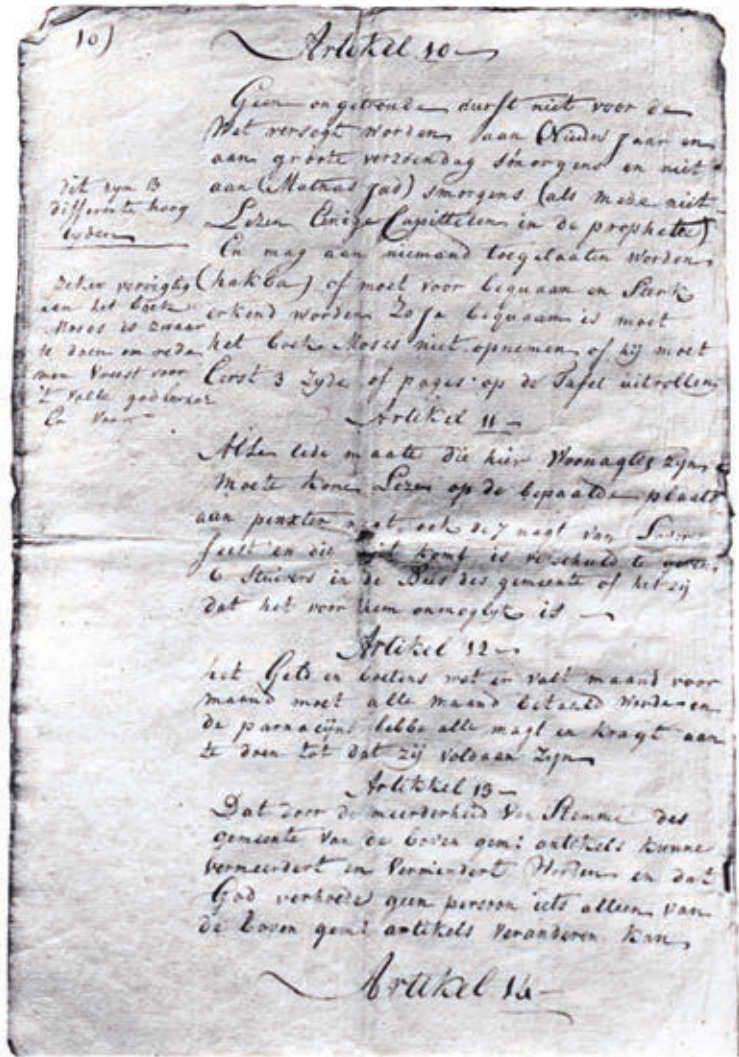 10)
Artikel 10
Geen ongetroude durft niet voor de
Wet versogt worden aan Nieuw Jaar en
aan groote verzoendag smorgens en niet
aan (Mathas Jad) smorgens (als mede niet
Lezen Einige Capittelen in de prophete)
En mag aan niemand toegelaaten worden
(hakba) of moet voor bequaam en Sterk
erkend worden Zo Ja bequaam is moet
het boek Moses niet opnemen of hij moet
Eerst 3 Zyde of pages op de Tafel uitrollen
dit zyn 3
differente hoog
tyden
Zeker
aan het boek
Moses is zwaar
te doen om rede
men Vreest voor
't Valle
Artikel 11
Alle lede maate die hier Woonagtig zijn
Moete kome Leze op de bepaalde plaats
aan pinxter nagt ook de 7 nagt van
feest en die niet komt is verschuld te geven
6 Stuivers in de Bus des gemeente of het zij
dat het voor hem onmoglyk is
Artikel 12
het Geld en boetens wat er valt maand voor
maand moet alle maand betaald worden en
de parnacijns hebbe alle magt en kragt aan
te doen tot dat zij voldaan Zyn
Artikkel 13
Dat door de meerderheid van Stemme des
gemeente van de boven gem: artikels kunne
vermeerdert en Vermindert Worden en dat
God verhoede geen persoon iets alleen van
de boven gem: artikels Veranderen kan
Artikel 14